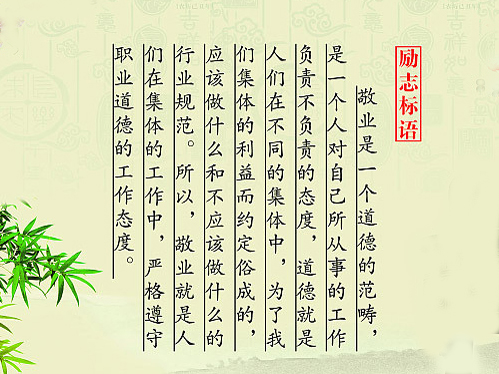 励志标语
敬业是一个道德的范畴，
是一个人对自己所从事的工作
负责不负责的态度，道德就是
人们在不同的集体中，为了我
们集体的利益而约定俗成的，
应该做什么和不应该做什么的
行业规范。所以，敬业就是人
们在集体的工作中，严格遵守
职业道德的工作态度。